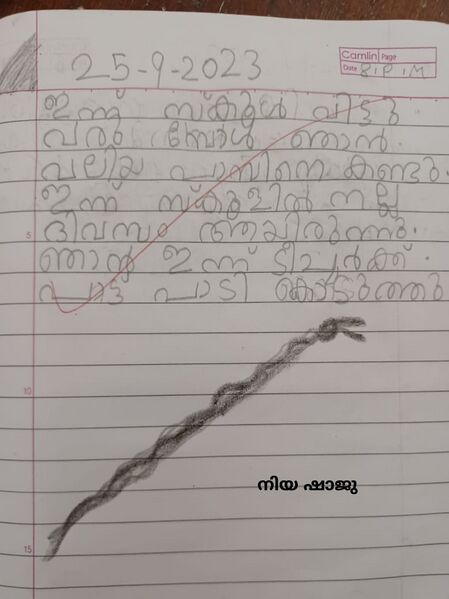 25-9-2023
Camlin Page
Date
ഇന്ന് സ്കൂൾ വിട്ടു
വരു മ്പോൾ ഞാൻ
വലിയ പാമ്പിനെ കണ്ടു.
ഇന്ന് സ്കൂളിൽ നല്ല
ദിവസം ആയിരുന്നു.
ഞാൻ ഇന്ന് ടീച്ചർക്ക്
പാട്ട് പാടി കൊടുത്തു
5
10
15
നിയ ഷാജു